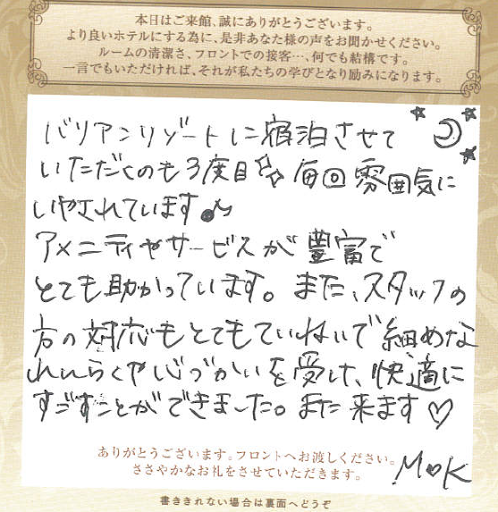 本日はご来館、誠にありがとうございます。
より良いホテルにする為に、是非あなた様の声をお聞かせください。
ルームの清潔さ、フロントでの接客…、何でも結構です。
一言でもいただければ、それが私たちの学びとなり励みになります。
バリアンリゾートに宿泊させて
いただくのも3度目✨毎回雰囲気に
いやされています♪
アメニティやサービスが豊富で
とても助かっています。また、スタッフの
方の対応もとてもていねいで細めな
れんらくや心づかいを受け、快適に
すごすことができました。また来ます♡
ありがとうございます。フロントへお渡しください。
ささやかなお礼をさせていただきます。
M♥K
書ききれない場合は裏面へどうぞ